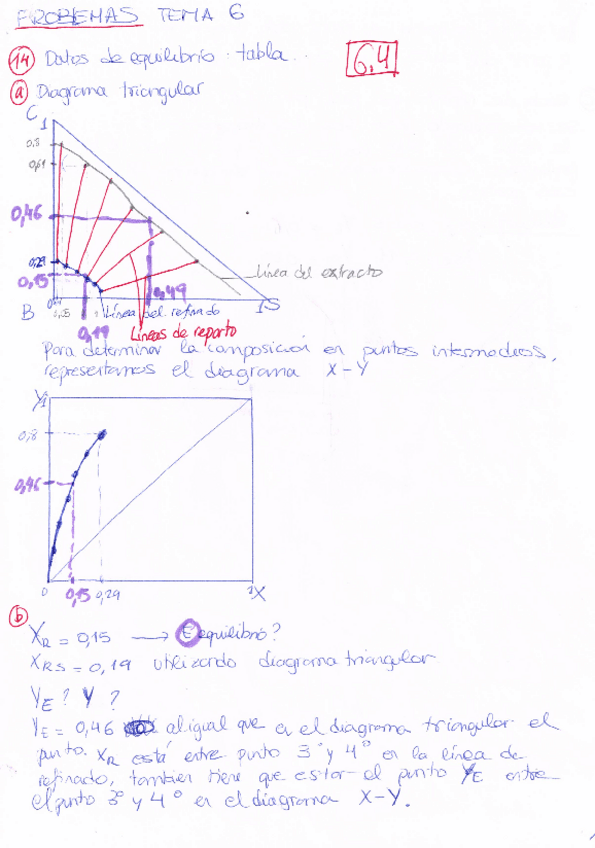 PROBLEMAS TEMA 6
14 Datos de equilibrio: tabla..
6.4
a Diagrama triangular
C 1
0,8
0,61
0,46
0,29
0,15
0,49
Línea del extracto
B
0,15
1 S
Línea del refinado
0,19
Líneas de reparto
Para determinar la composición en puntos intermedios,
representamos el diagrama X-Y
Y 1
0,8
0,46
0 0,15 0,29 1 X
b
XR = 0,15 → E equilibrio?
XRS = 0,19 utilizando diagrama triangular
YE? Y?
YE = 0,46 al igual que en el diagrama triangular el
punto XR está entre punto 3º y 4º en la línea de
refinado, tambien tiene que estar el punto YE entre
el punto 3º y 4º en el diagrama X-Y.